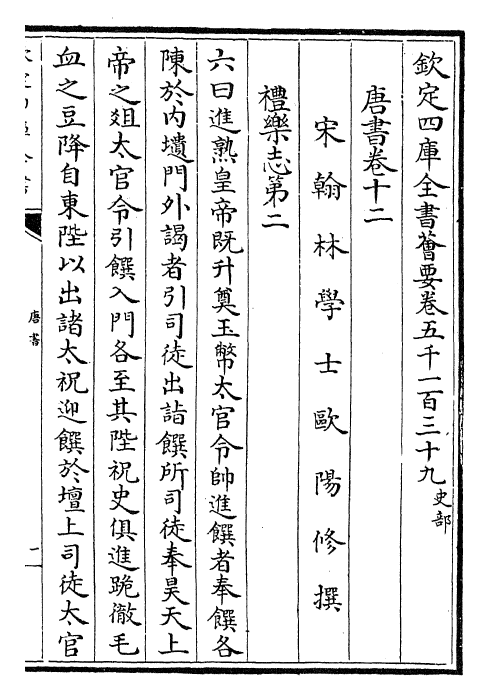 欽定四庫全書薈要卷五千一百三十九史部
唐書卷十二
宋翰林學士歐陽修撰
禮樂志第二
六曰進熟皇帝既升奠玉幣太官令帥進饌者奉饌各
陳於內壝門外謁者引司徒出詣饌所司徒奉昊天上
帝之俎太官令引饌入門各至其陛祝史俱進跪徹毛
血之豆降自東陛以出諸太祝迎饌於壇上司徒太官
唐書
二